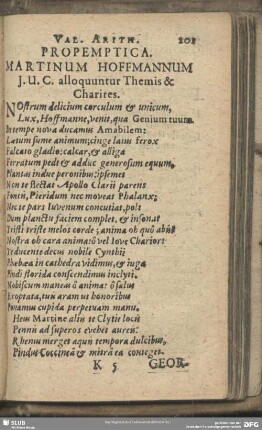 VAL. ARITH. 201
PROPEMPTICA.
MARTINUM HOFFMANNUM
J. U. C. alloquuntur Themis &
Charites.
Nostrum delicium corculum & unicum,
Lux, Hoffmanne, venit, qua Genium tuum
In tempe nova ducamus Amabilem:
Latum sume animum; cinge latus ferox
Falcato gladio: calcar, & alliga
Ferratum pedi & adduc generosum equum,
Plantas indue peronibus: ipsemet
Non te flectat Apollo Clarii parens
Fontis, Pieridum nec moveat Phalanx;
Nec te pars Iuvenum concutiat, post
Dum planctu faciem complet, & insonat
Tristi triste melos corde; anima oh quò abis
Nostra oh cara anima: ô vel Iove Charior!
Te ducente decus nobile Cynthii
Phœbæa in cathedra vidimus, et juga
Pindi florida conscendimus inclyti,
Nobiscum maneas ô anima: ô salus
Exoptata, tuu aram ut honoribus
Ponamus cupida perpetuam manu,
Heus Martine alis te Clytie locis
Pennis ad superos evehet aureis:
Rhenus merget aquis tempora dulcibus,
Pindus Coccineâ & mitrâ ea conteget.
K 5 GEOR-
SLUB
DFG